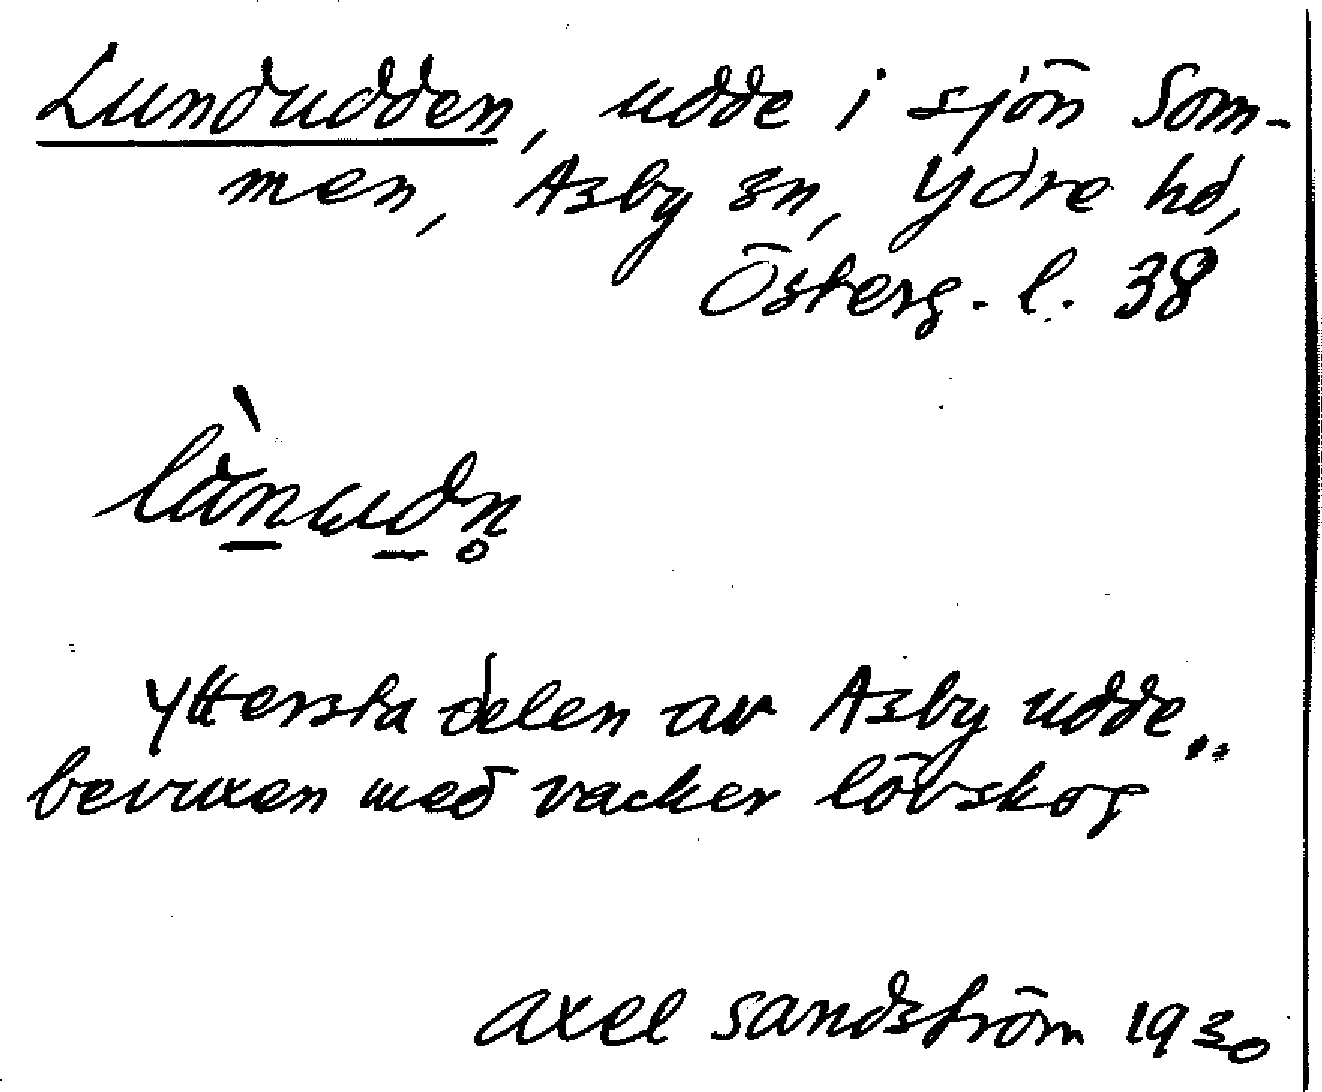 Lundudden, udde i sjön Som-
men, Asby sn, Ydre hd,
Österg. l. 38
Yttersta delen av Asby udde..
bevuxen med vacker lövskog
Axel Sandström 1930